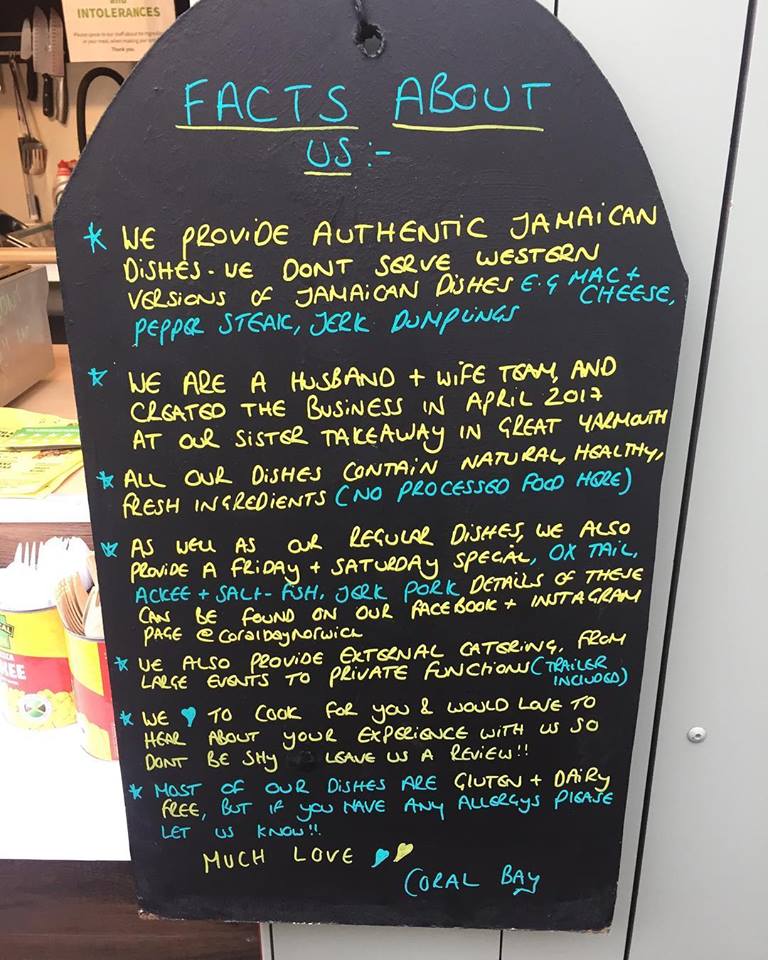 and
INTOLERANCES
Please speak to our staff about the ingredients
in your meal, when making your order
Thank you.
FACTS ABOUT
US:-
* WE PROVIDE AUTHENTIC JAMAICAN
DISHES - WE DONT SERVE WESTERN
VERSIONS OF JAMAICAN DISHES E.G MAC +
CHEESE,
PEPPER STEAK, JERK DUMPLINGS
* WE ARE A HUSBAND + WIFE TEAM, AND
CREATED THE BUSINESS IN APRIL 2017
AT OUR SISTER TAKEAWAY IN GREAT YARMOUTH
* ALL OUR DISHES CONTAIN NATURAL, HEALTHY,
FRESH INGREDIENTS (NO PROCESSED FOOD HERE)
* AS WELL AS OUR REGULAR DISHES, WE ALSO
PROVIDE A FRIDAY + SATURDAY SPECIAL, OX TAIL,
ACKEE + SALT-FISH, JERK PORK DETAILS OF THESE
CAN BE FOUND ON OUR FACEBOOK + INSTAGRAM
PAGE @coralbaynorwich
* WE ALSO PROVIDE EXTERNAL CATERING, FROM
LARGE EVENTS TO PRIVATE FUNCTIONS (TRAILER
INCLUDED)
* WE TO COOK FOR YOU & WOULD LOVE TO
HEAR ABOUT YOUR EXPERIENCE WITH US SO
DONT BE SHY LEAVE US A REVIEW!!
* MOST OF OUR DISHES ARE GLUTEN + DAIRY
FREE, BUT IF YOU HAVE ANY ALLERGYS PLEASE
LET US KNOW!!
MUCH LOVE
CORAL BAY